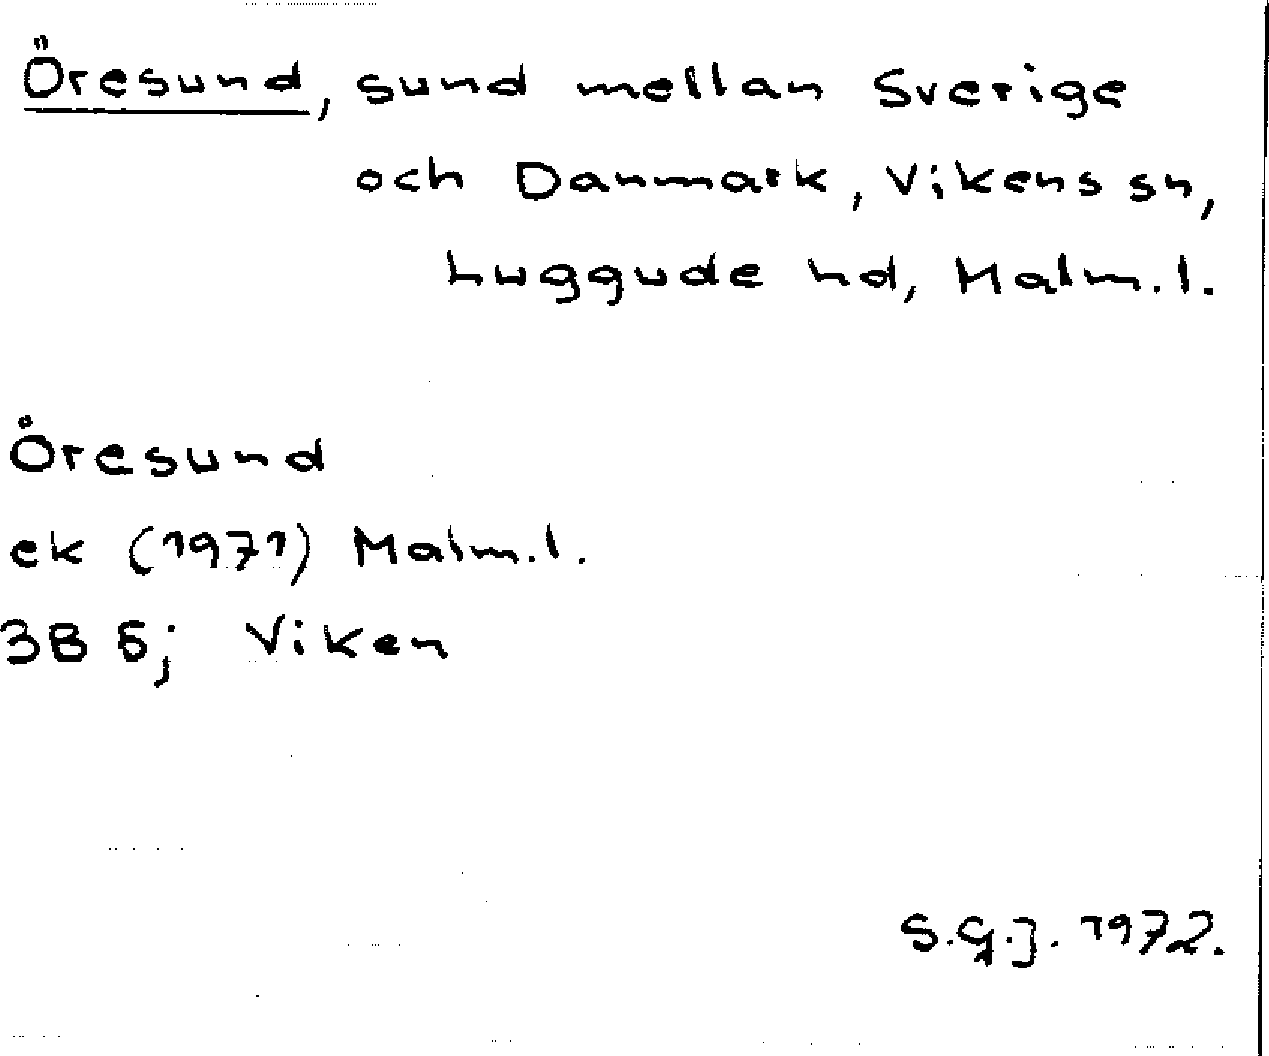 Öresund, sund mellan Sverige
och Danmark, Vikens sn,
Luggude hd, Malm.l.
Öresund
ek (1971) Malm.l.
3B 6; Viken
S.G.J. 1972.